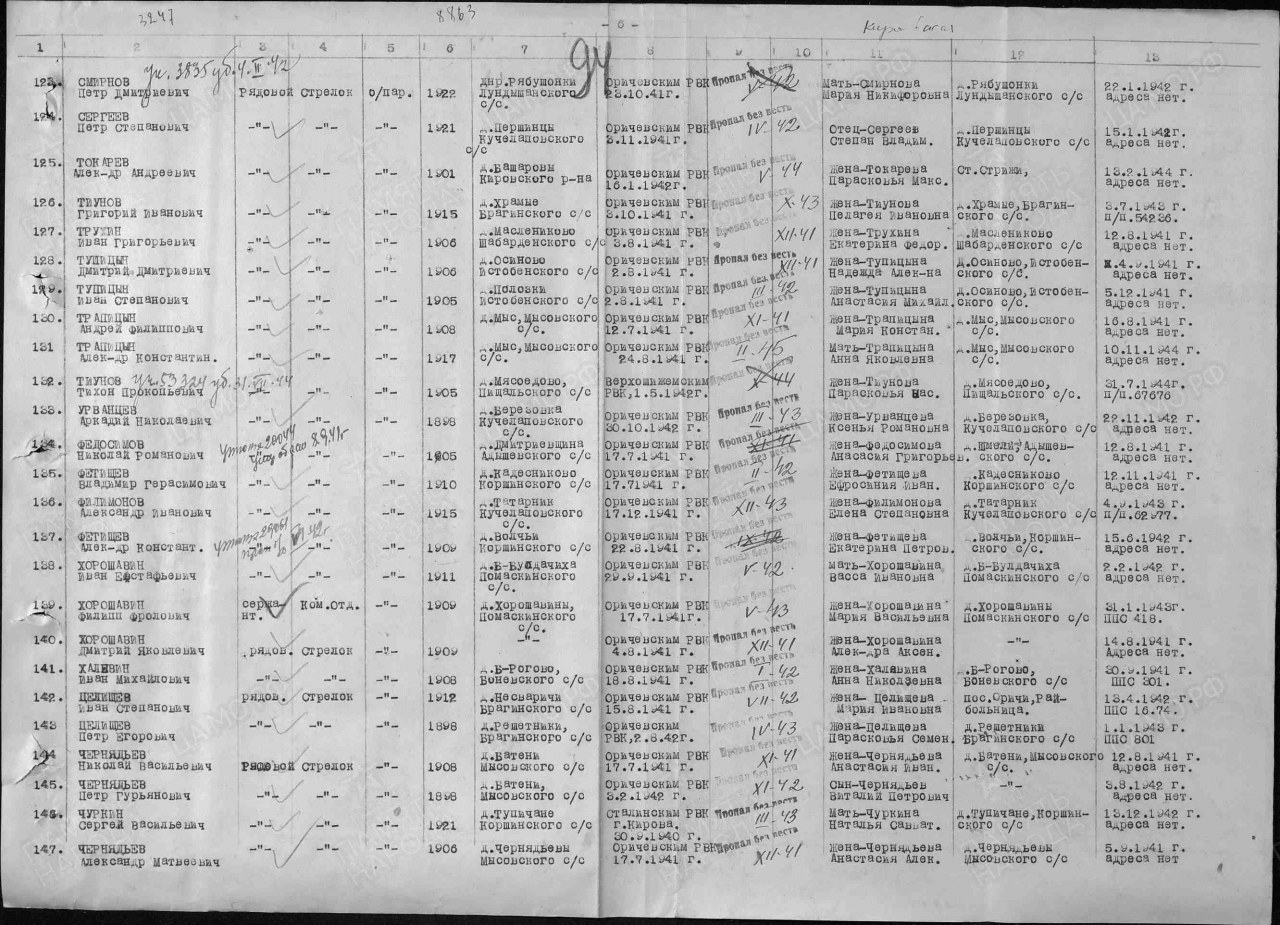 3247
8863
- 6 -
1 2 3 4 5 6 7 8 9 10 11 12 13
94
ук. 3835 уб. 4.II.42
123. СМИРНОВ Петр Дмитриевич Рядовой Стрелок о/пар. 1922 днр.Рябушонки Лундышанского с/с. Оричевским РВК 23.10.41г. Пропал без вести V-42 Мать-Смирнова Мария Никифоровна д.Рябушонки Лундышанского с/с 22.1.1942 г. адреса нет.
124. СЕРГЕЕВ Петр Степанович -"- -"- -"- 1921 д.Першинцы Кучелаповского с/с Оричевским РВК 3.11.1941г. Пропал без вести IV-42 Отец-Сергеев Степан Владим. д.Першинцы Кучелаповского с/с 15.1.1942г. адреса нет.
125. ТОКАРЕВ Алек-др Андреевич -"- -"- -"- 1901 д.Башаровы Кировского р-на Оричевским РВК 16.1.1942г. Пропал без вести V-44 Жена-Токарева Парасковья Макс. Ст.Стрижи, 13.2.1944 г. адреса нет.
126. ТИУНОВ Григорий Иванович -"- -"- -"- 1915 д.Храмые Брагинского с/с Оричевским РВК 3.10.1941 г. Пропал без вести X-43 Жена-Тиунова Пелагея Ивановна д.Храмые,Брагин- ского с/с. 3.7.1943 г. п/п.54236.
127. ТРУХИН Иван Григорьевич -"- -"- -"- 1906 д.Маслениково Шабарденского с/с Оричевским РВК 3.8.1941 г. Пропал без вести XII-41 Жена-Трухина Екатерина Федор. д.Маслениково Шабарденского с/с 12.8.1941 г. адреса нет.
128. ТУПИЦЫН Дмитрий Дмитриевич -"- -"- -"- 1906 д.Осиново Истобенского с/с Оричевским РВК 2.8.1941 г. Пропал без вести XII-41 Жена-Тупицына Надежда Алек-на д.Осиново,Истобен- ского с/с. 4.9.1941 г. адреса нет.
129. ТУПИЦЫН Иван Степанович -"- -"- -"- 1905 д.Полозки Истобенского с/с Оричевским РВК 2.8.1941 г. Пропал без вести III-42 Жена-Тупицына Анастасия Михайл. д.Осиново,Истобен- ского с/с. 5.12.1941 г. адреса нет.
130. ТРАПИЦЫН Андрей Филиппович -"- -"- -"- 1908 д.Мыс,Мысовского с/с. Оричевским РВК 12.7.1941 г. Пропал без вести XI-41 Жена-Трапицына Мария Констан. д.Мыс,Мысовского с/с. 16.8.1941 г. адреса нет.
131 ТРАПИЦЫН Алек-др Константин. -"- -"- -"- 1917 д.Мыс,Мысовского с/с. Оричевским РВК 24.8.1941 г. Пропал без вести II-45 Мать-Трапицына Анна Яковлевна д.Мыс,Мысовского с/с. 10.11.1944 г. адреса нет.
132. ТИУНОВ Тихон Прокопьевич ук.53324 уб. 31.VII-44 -"- -"- -"- 1905 д.Мясоедово, Пищальского с/с Верхошижемским РВК,1.5.1942г. Пропал без вести X-44 Жена-Тиунова Парасковья Вас. д.Мясоедово, Пищальского с/с. 31.7.1944г. п/п.67676
133. УРВАНЦЕВ Аркадий Николаевич -"- -"- -"- 1898 д.Березовка Кучелаповского с/с. Оричевским РВК 30.10.1942 г. Пропал без вести III-43 Жена-Урванцева Ксенья Романовна д.Березовка, Кучелаповского с/с 22.11.1942 г. адреса нет.
134. ФЕДОСИМОВ Николай Романович -"- -"- 1905 д.Дмитриевщина Адышевского с/с Оричевским РВК 17.7.1941 г. Пропал без вести XI-41 Жена-Федосимова Анасасия Григорьев. д.Шмели,Адышев- ского с/с. 12.8.1941 г. адреса нет.
135. ФЕТИЩЕВ Владимир Герасимович -"- -"- -"- 1910 д.Кадесниково Коршинского с/с Оричевским РВК 17.71941 г. Пропал без вести II-42 Жена-Фетищева Ефросиния Иван. д.Кадесниково Коршинского с/с 12.11.1941 г. адреса нет.
136. ФИЛИМОНОВ Александр Иванович -"- -"- -"- 1915 д.Татарник Кучелаповского с/с. Оричевским РВК 17.12.1941 г. Пропал без вести XII-43 Жена-Филимонова Елена Степановна д.Татарник Кучелаповского с/с 4.9.1943 г. п/п.62977.
137. ФЕТИЩЕВ Алек-др Констант. -"- -"- -"- 1909 д.Волчьи Коршинского с/с Оричевским РВК 22.8.1941 г. Пропал без вести IX-42 Жена-Фетищева Екатерина Петров. д.Волчьи,Коршин- ского с/с. 15.6.1942 г. адреса нет.
138. ХОРОШАВИН Иван Ефстафьевич -"- -"- -"- 1911 д.Б-Булдачиха Помаскинского с/с. Оричевским РВК 29.9.1941 г. Пропал без вести V-42 Мать-Хорошавина Васса Ивановна д.Б-Булдачиха Помаскинского с/с 2.2.1942 г. адреса нет.
139. ХОРОШАВИН Филипп Фролович сержа- нт. Ком.отд. -"- 1909 д.Хорошавины, Помаскинского с/с. Оричевским РВК 17.7.1941г. Пропал без вести V-43 Жена-Хорошавина Мария Васильевна д.Хорошавины Помаскинского с/с 31.1.1943г. ППС 418.
140. ХОРОШАВИН Дмитрий Яковлевич рядов. Стрелок -"- 1909 -"- Оричевским РВК 4.8.1941 г. Пропал без вести XII-41 Жена-Хорошавина Алек-дра Аксен. -"- 14.8.1941 г. Адреса нет.
141. ХАЛЯВИН Иван Михайлович -"- -"- -"- 1908 д.Б-Рогово, Воневского с/с Оричевским РВК 18.8.1941 г. Пропал без вести I-42 Жена-Халявина Анна Николаевна д.Б-Рогово, Воневского с/с 30.9.1941 г. ППС 301.
142. ЦЕЛИЩЕВ Иван Степанович рядов. Стрелок -"- 1912 д.Несваричи Брагинского с/с Оричевским РВК 15.8.1941 г. Пропал без вести VII-42 Жена- Целищева Мария Ивановна пос.Оричи,Рай- больница. 13.4.1942 г. ППС 16.74.
143 ЦЕЛИЩЕВ Петр Егорович -"- -"- -"- 1898 д.Решетники, Брагинского с/с Оричевским РВК,2.8.42г. Пропал без вести IV-43 Жена-Целищева Парасковья Семен. д.Решетники Брагинского с/с 1.1.1943 г. ППС 801
144 ЧЕРНЯДЬЕВ Николай Васильевич Рядовой Стрелок -"- 1908 д.Батени Мысовского с/с Оричевским РВК 17.7.1941 г. Пропал без вести XI-41 Жена-Чернядьева Анастасия Иван. д.Батени,Мысовского с/с. 12.8.1941 г. адреса нет.
145. ЧЕРНЯДЬЕВ Петр Гурьянович -"- -"- -"- 1898 д.Батени, Мысовского с/с Оричевским РВК 3.2.1942 г. Пропал без вести XI-42 Сын-Чернядьев Виталий Петрович -"- 3.8.1942 г. адреса нет.
146. ЧУРКИН Сергей Васильевич -"- -"- -"- 1921 д.Тупичане Коршинского с/с Сталинским РВК г.Кирова. 30.9.1940 г. Пропал без вести III-43 Мать-Чуркина Наталья Савват. д.Тупичане,Коршин- ского с/с 13.12.1942 г. адреса нет.
147. ЧЕРНЯДЬЕВ Александр Матвеевич -"- -"- -"- 1906 д.Чернядьевы Мысовского с/с Оричевским РВК 17.7.1941 г. Пропал без вести XII-41 Жена-Чернядьева Анастасия Алек. д.Чернядьевы Мысовского с/с 5.9.1941 г. адреса нет